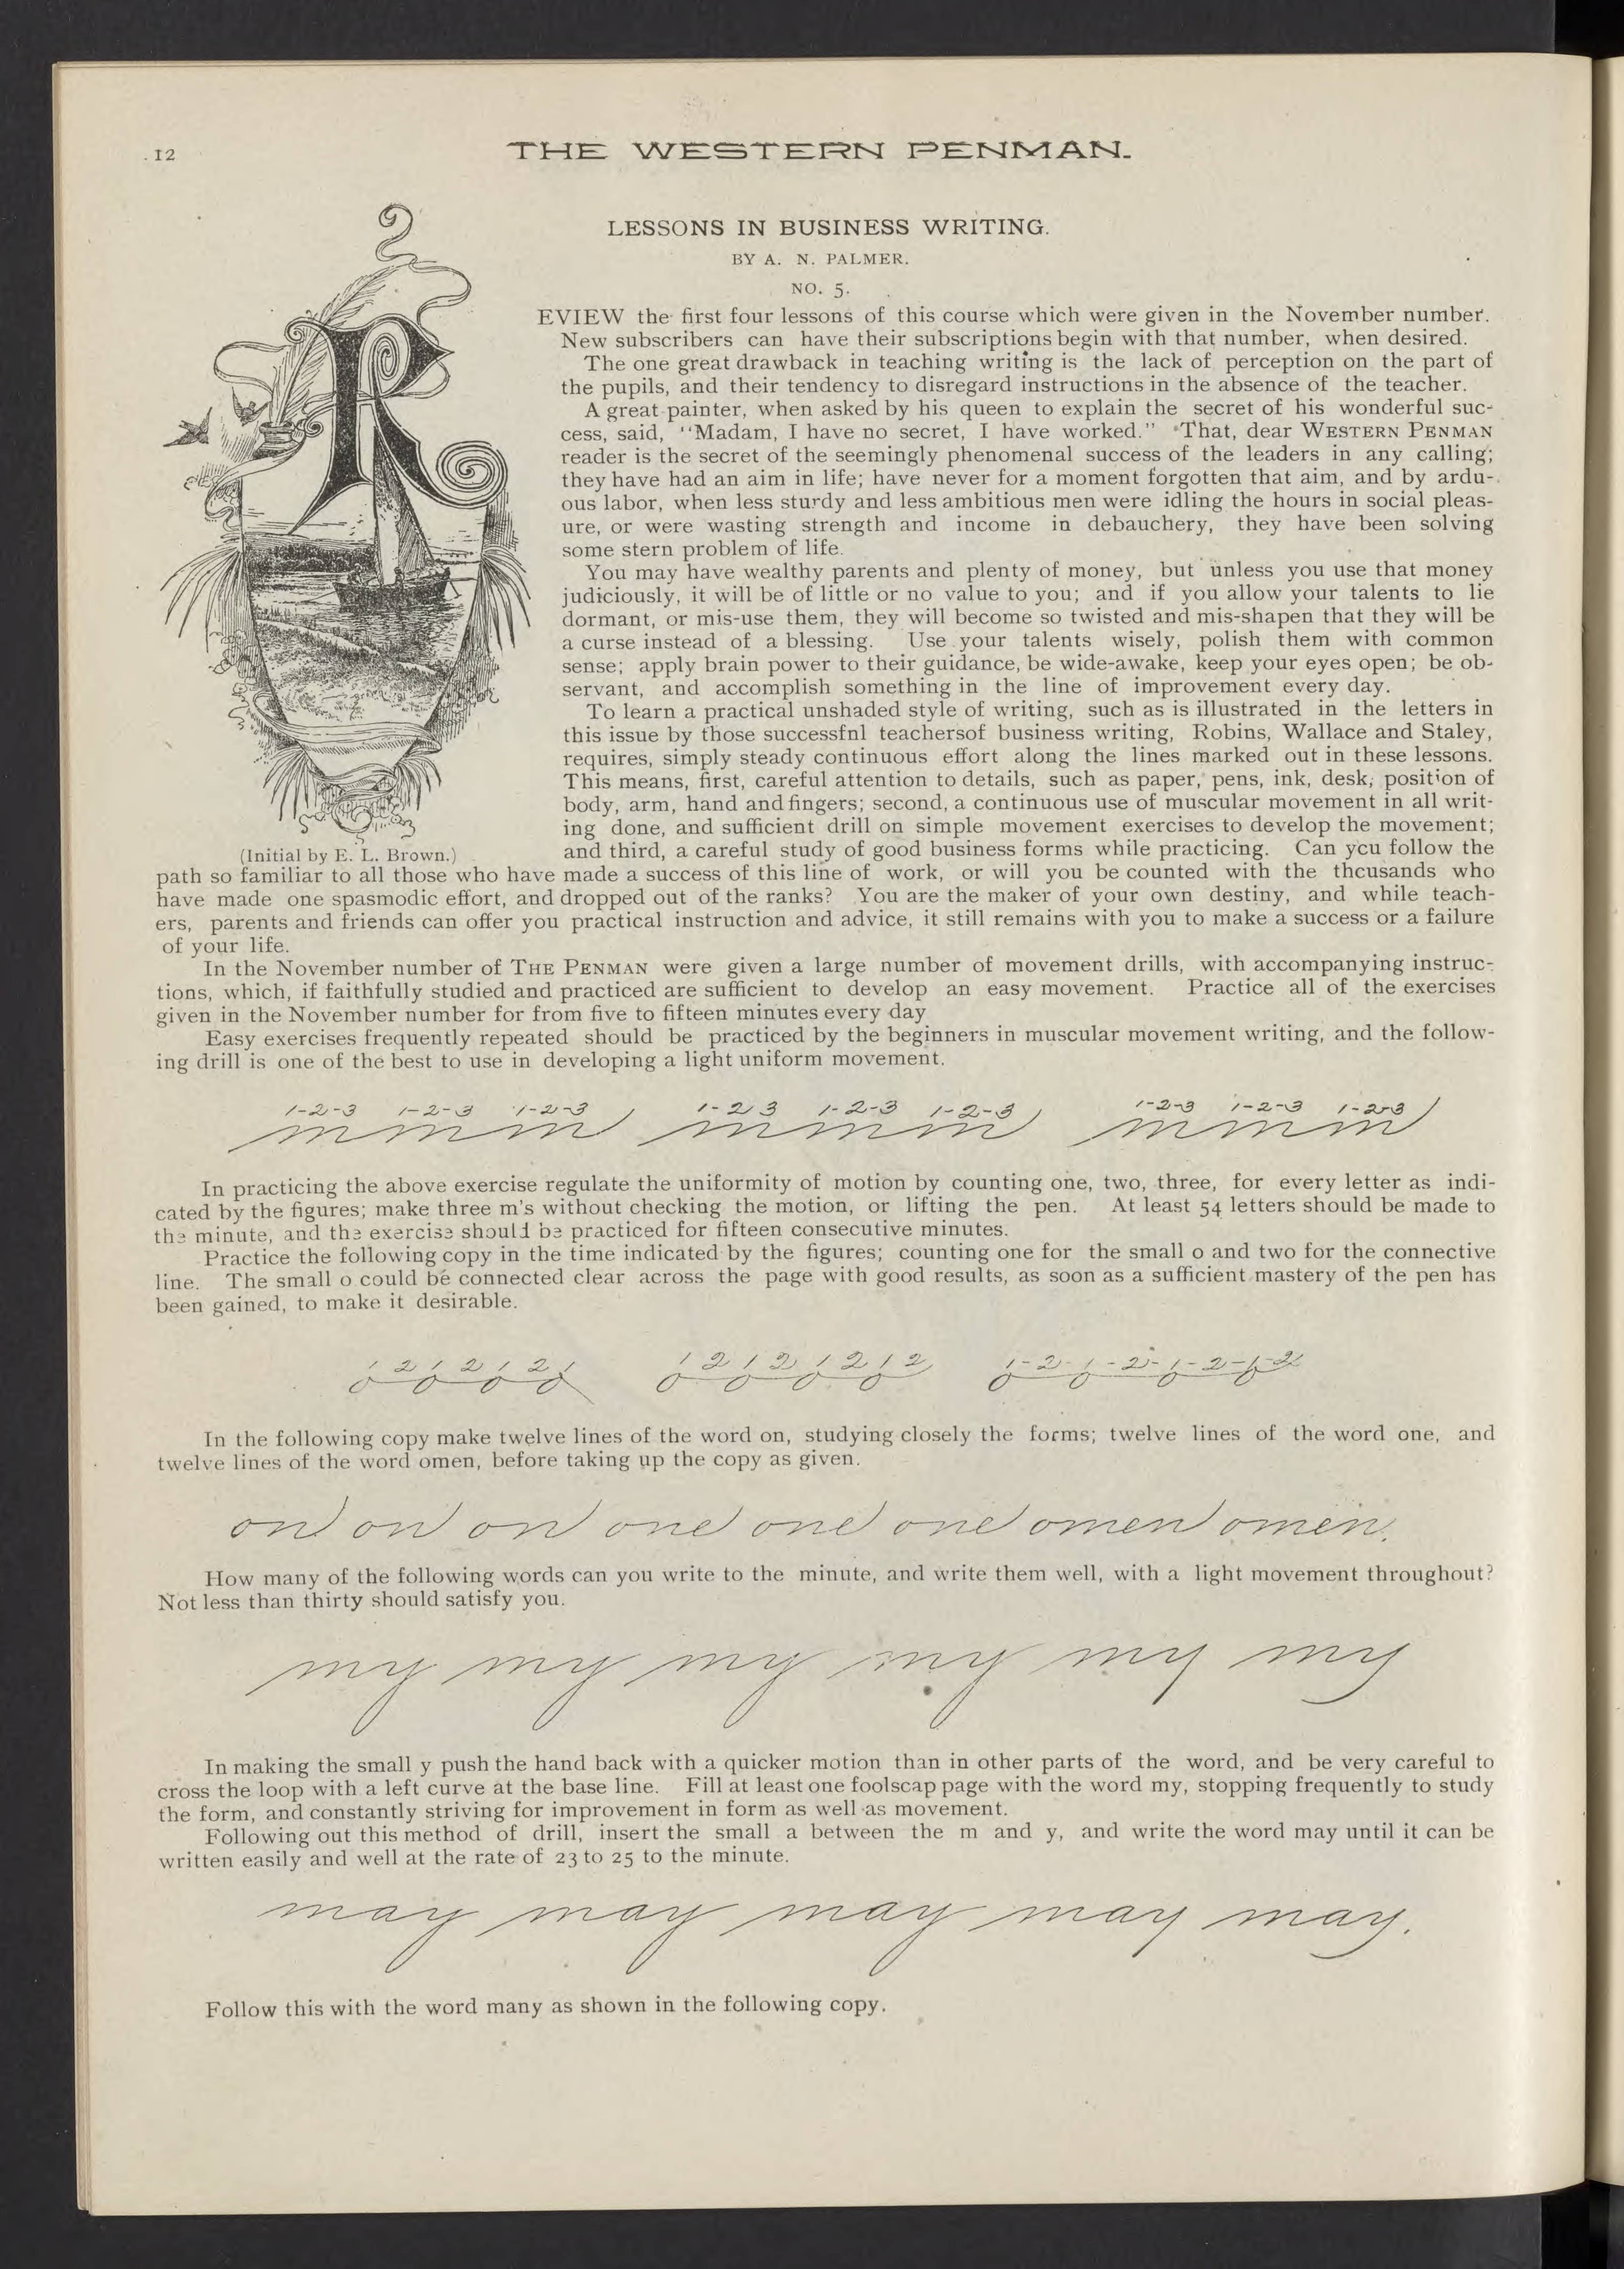 12
THE WESTERN PENMAN.
LESSONS IN BUSINESS WRITING.
BY A. N. PALMER.
NO. 5.
REVIEW the first four lessons of this course which were given in the November number.
New subscribers can have their subscriptions begin with that number, when desired.
The one great drawback in teaching writing is the lack of perception on the part of
the pupils, and their tendency to disregard instructions in the absence of the teacher.
A great painter, when asked by his queen to explain the secret of his wonderful suc-
cess, said, "Madam, I have no secret, I have worked." That, dear WESTERN PENMAN
reader is the secret of the seemingly phenomenal success of the leaders in any calling;
they have had an aim in life; have never for a moment forgotten that aim, and by ardu-
ous labor, when less sturdy and less ambitious men were idling the hours in social pleas-
ure, or were wasting strength and income in debauchery, they have been solving
some stern problem of life.
You may have wealthy parents and plenty of money, but unless you use that money
judiciously, it will be of little or no value to you; and if you allow your talents to lie
dormant, or mis-use them, they will become so twisted and mis-shapen that they will be
a curse instead of a blessing. Use your talents wisely, polish them with common
sense; apply brain power to their guidance, be wide-awake, keep your eyes open; be ob-
servant, and accomplish something in the line of improvement every day.
To learn a practical unshaded style of writing, such as is illustrated in the letters in
this issue by those successfnl teachersof business writing, Robins, Wallace and Staley,
requires, simply steady continuous effort along the lines marked out in these lessons.
This means, first, careful attention to details, such as paper, pens, ink, desk, position of
body, arm, hand and fingers; second, a continuous use of muscular movement in all writ-
ing done, and sufficient drill on simple movement exercises to develop the movement;
(Initial by E. L. Brown.)
and third, a careful study of good business forms while practicing. Can ycu follow the
path so familiar to all those who have made a success of this line of work, or will you be counted with the thcusands who
have made one spasmodic effort, and dropped out of the ranks? You are the maker of your own destiny, and while teach-
ers, parents and friends can offer you practical instruction and advice, it still remains with you to make a success or a failure
of your life.
In the November number of THE PENMAN were given a large number of movement drills, with accompanying instruc-
tions, which, if faithfully studied and practiced are sufficient to develop an easy movement. Practice all of the exercises
given in the November number for from five to fifteen minutes every day
Easy exercises frequently repeated should be practiced by the beginners in muscular movement writing, and the follow-
ing drill is one of the best to use in developing a light uniform movement.
1-2-3 1-2-3 1-2-3 1-2 3 1-2-3 1-2-3 1-2-3 1-2-3 1-2-3
m m m m m m m m m
In practicing the above exercise regulate the uniformity of motion by counting one, two, three, for every letter as indi-
cated by the figures; make three m's without checking the motion, or lifting the pen. At least 54 letters should be made to
the minute, and the exercise should be practiced for fifteen consecutive minutes.
Practice the following copy in the time indicated by the figures; counting one for the small o and two for the connective
line. The small o could be connected clear across the page with good results, as soon as a sufficient mastery of the pen has
been gained, to make it desirable.
1 2 1 2 1 2 1 1 2 1 2 1 2 1 2 1-2-1-2-1-2-1-2
o o o o o o o o o o o o
In the following copy make twelve lines of the word on, studying closely the forms; twelve lines of the word one, and
twelve lines of the word omen, before taking up the copy as given.
on on on one one one omen omen.
How many of the following words can you write to the minute, and write them well, with a light movement throughout?
Not less than thirty should satisfy you.
my my my my my my
In making the small y push the hand back with a quicker motion than in other parts of the word, and be very careful to
cross the loop with a left curve at the base line. Fill at least one foolscap page with the word my, stopping frequently to study
the form, and constantly striving for improvement in form as well as movement.
Following out this method of drill, insert the small a between the m and y, and write the word may until it can be
written easily and well at the rate of 23 to 25 to the minute.
may may may may may.
Follow this with the word many as shown in the following copy.